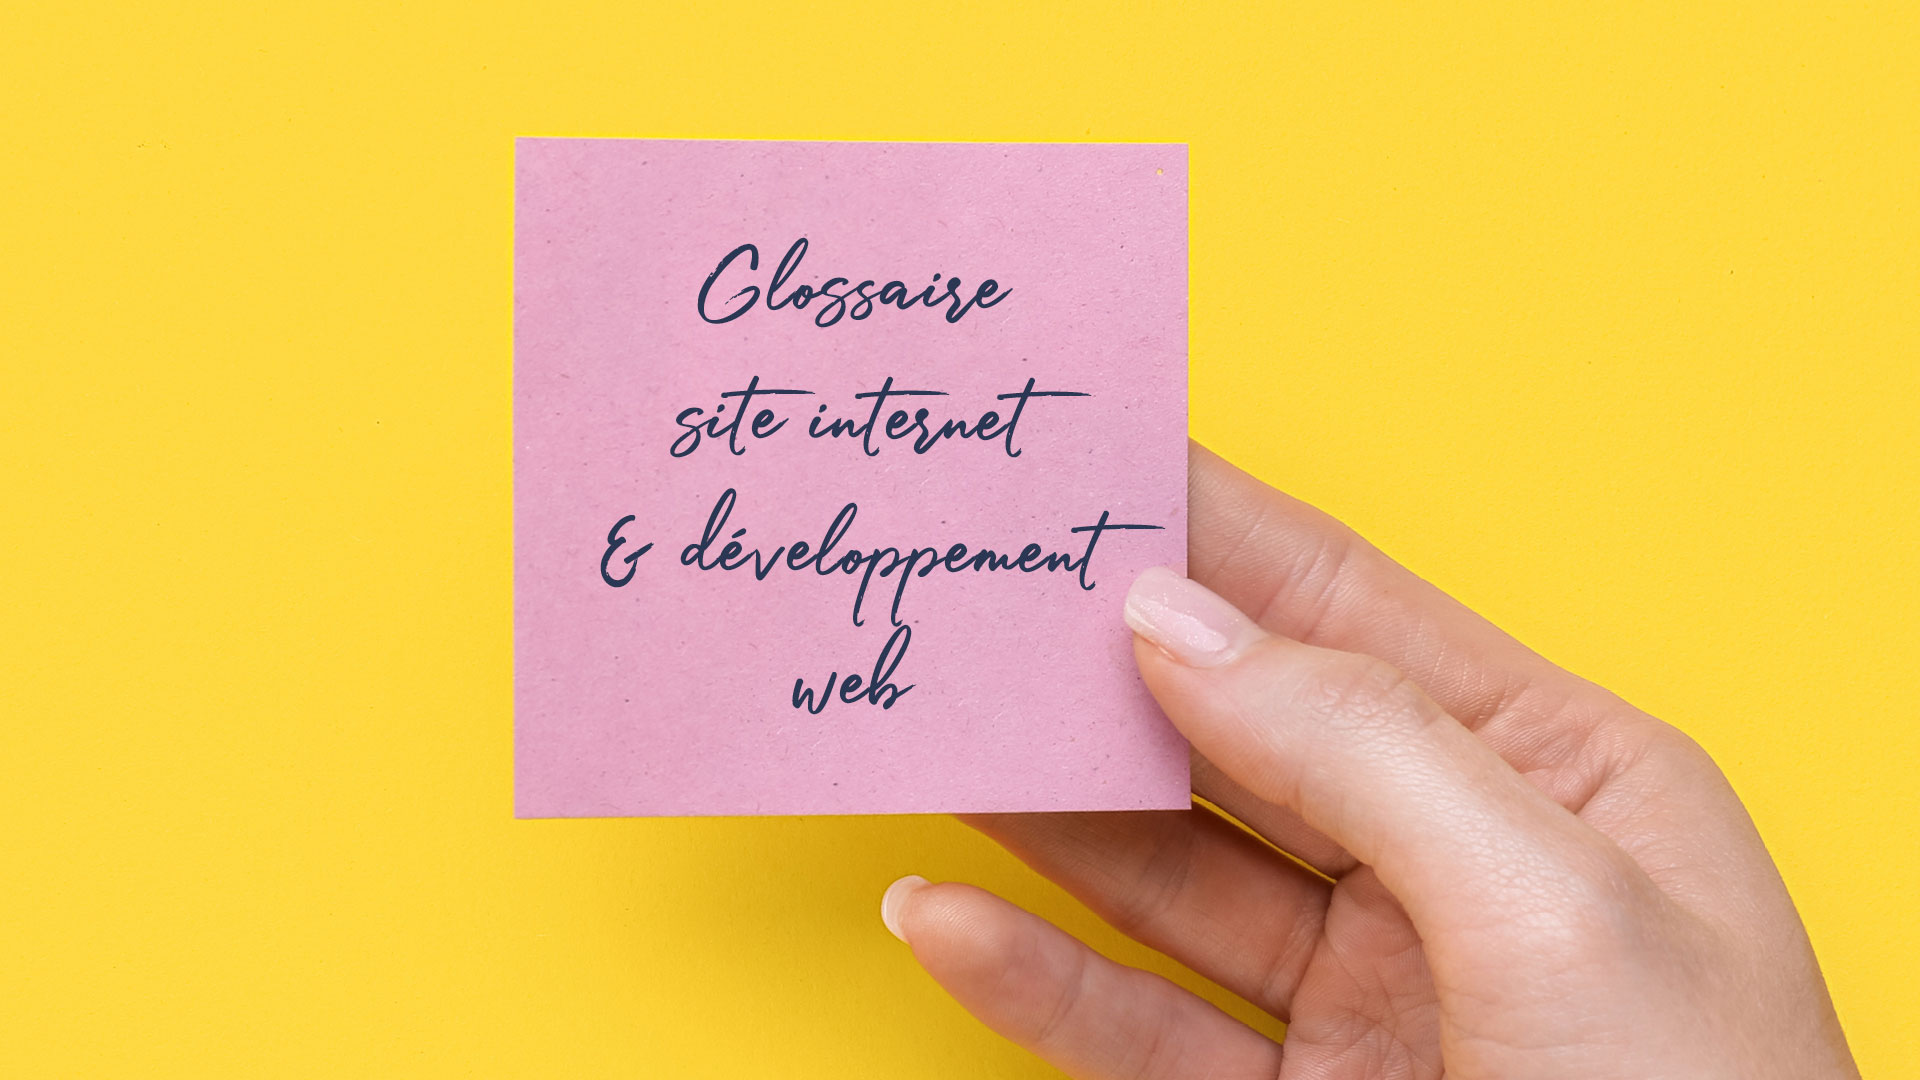 Glossaire
site internet
& développement
web